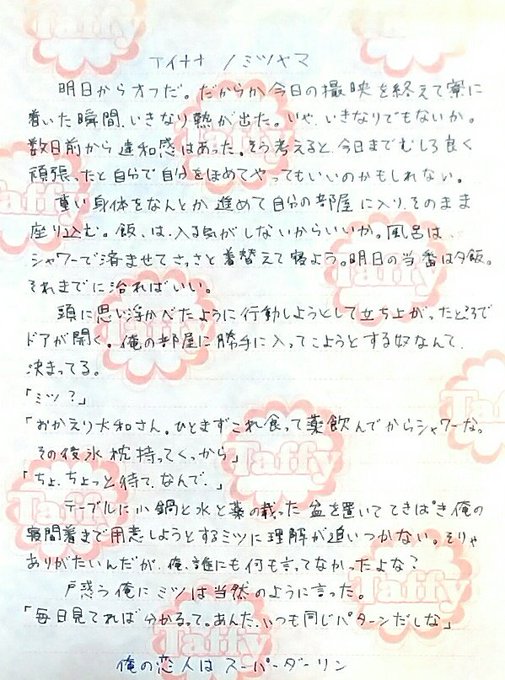 アイナナ / ミツヤマ
明日からオフだ。だからか今日の撮映を終えて寮に
着いた瞬間、いきなり熱が出た。いや、いきなりでもないか。
数日前から違和感はあった。そう考えると、今日までむしろ良く
頑張ったと自分で自分をほめてやってもいいのかもしれない。
重い身体をなんとか進めて自分の部屋に入り、そのまま
座り込む。飯、は、入る気がしないからいいか。風呂は、
シャワーで済ませてさっさと着替えて寝よう。明日の当番は夕飯。
それまでに治ればいい。
頭に思い浮かべたように行動しようとして立ち上がったところで
ドアが開く。俺の部屋に勝手に入ってこようとする奴なんて、
決まってる。
「ミツ?」
「おかえり大和さん。ひとまずこれ食って薬飲んでからシャワーな。
その後氷枕持ってくっから」
「ちょ、ちょっと待て、なんで、」
テーブルに小鍋と水と薬の載った盆を置いててきぱき俺の
寝間着まで用意しようとするミツに理解が追いつかない。そりゃ
ありがたいんだが、俺、誰にも何も言ってなかったよな?
戸惑う俺にミツは当然のように言った。
「毎日見てれば分かるって。あんた、いつも同じパターンだしな」
俺の恋人はスーパーダーリン
Taffy
Taffy
Taffy
Taffy
Taffy
Taffy
Taffy
Taffy
Taffy
Taffy
Taffy